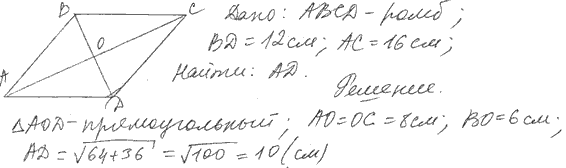 B
C
O
A
D
Дано: ABCD-ромб;
BD=12см; AC=16см;
Найти: AD.
Решение.
△AOD-прямоугольный; AO=OC=8см; BO=6см;
AD=√64+36=√100=10(см)